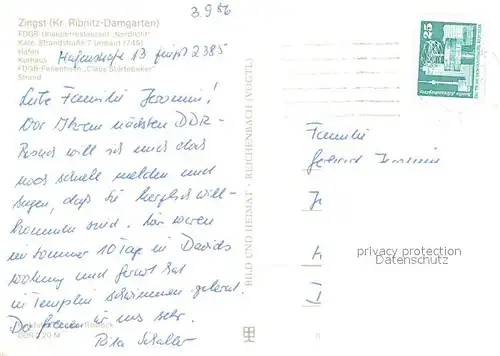 3.9.86
Zingst (Kr. Ribnitz-Damgarten)
FDGB-Urlauberrestaurant „Nordlicht"
Kate, Strandstraße 7 (erbaut 1745)
Hafen
Kurhaus
FDGB-Ferienheim „Claus Störtebeker"
Strand
Hafenstraße 13 2385
Liebe Familie Jeromin!
Vor Ihrem nächsten DDR-
Besuch will ich mich doch
noch schnell melden und
sagen, daß Sie herzlich will-
kommen sind. Wir waren
im Sommer 10 Tage in Davids
Wohnung und hat
in Templin schwimmen gelernt.
Da freuen wir uns sehr.
Rita Schaller
Rostock
DDR 0,20 M
BILD UND HEIMAT · REICHENBACH (VOGTL)
25
DDR
Familie
Gerhard Jeromin
privacy protection
Datenschutz